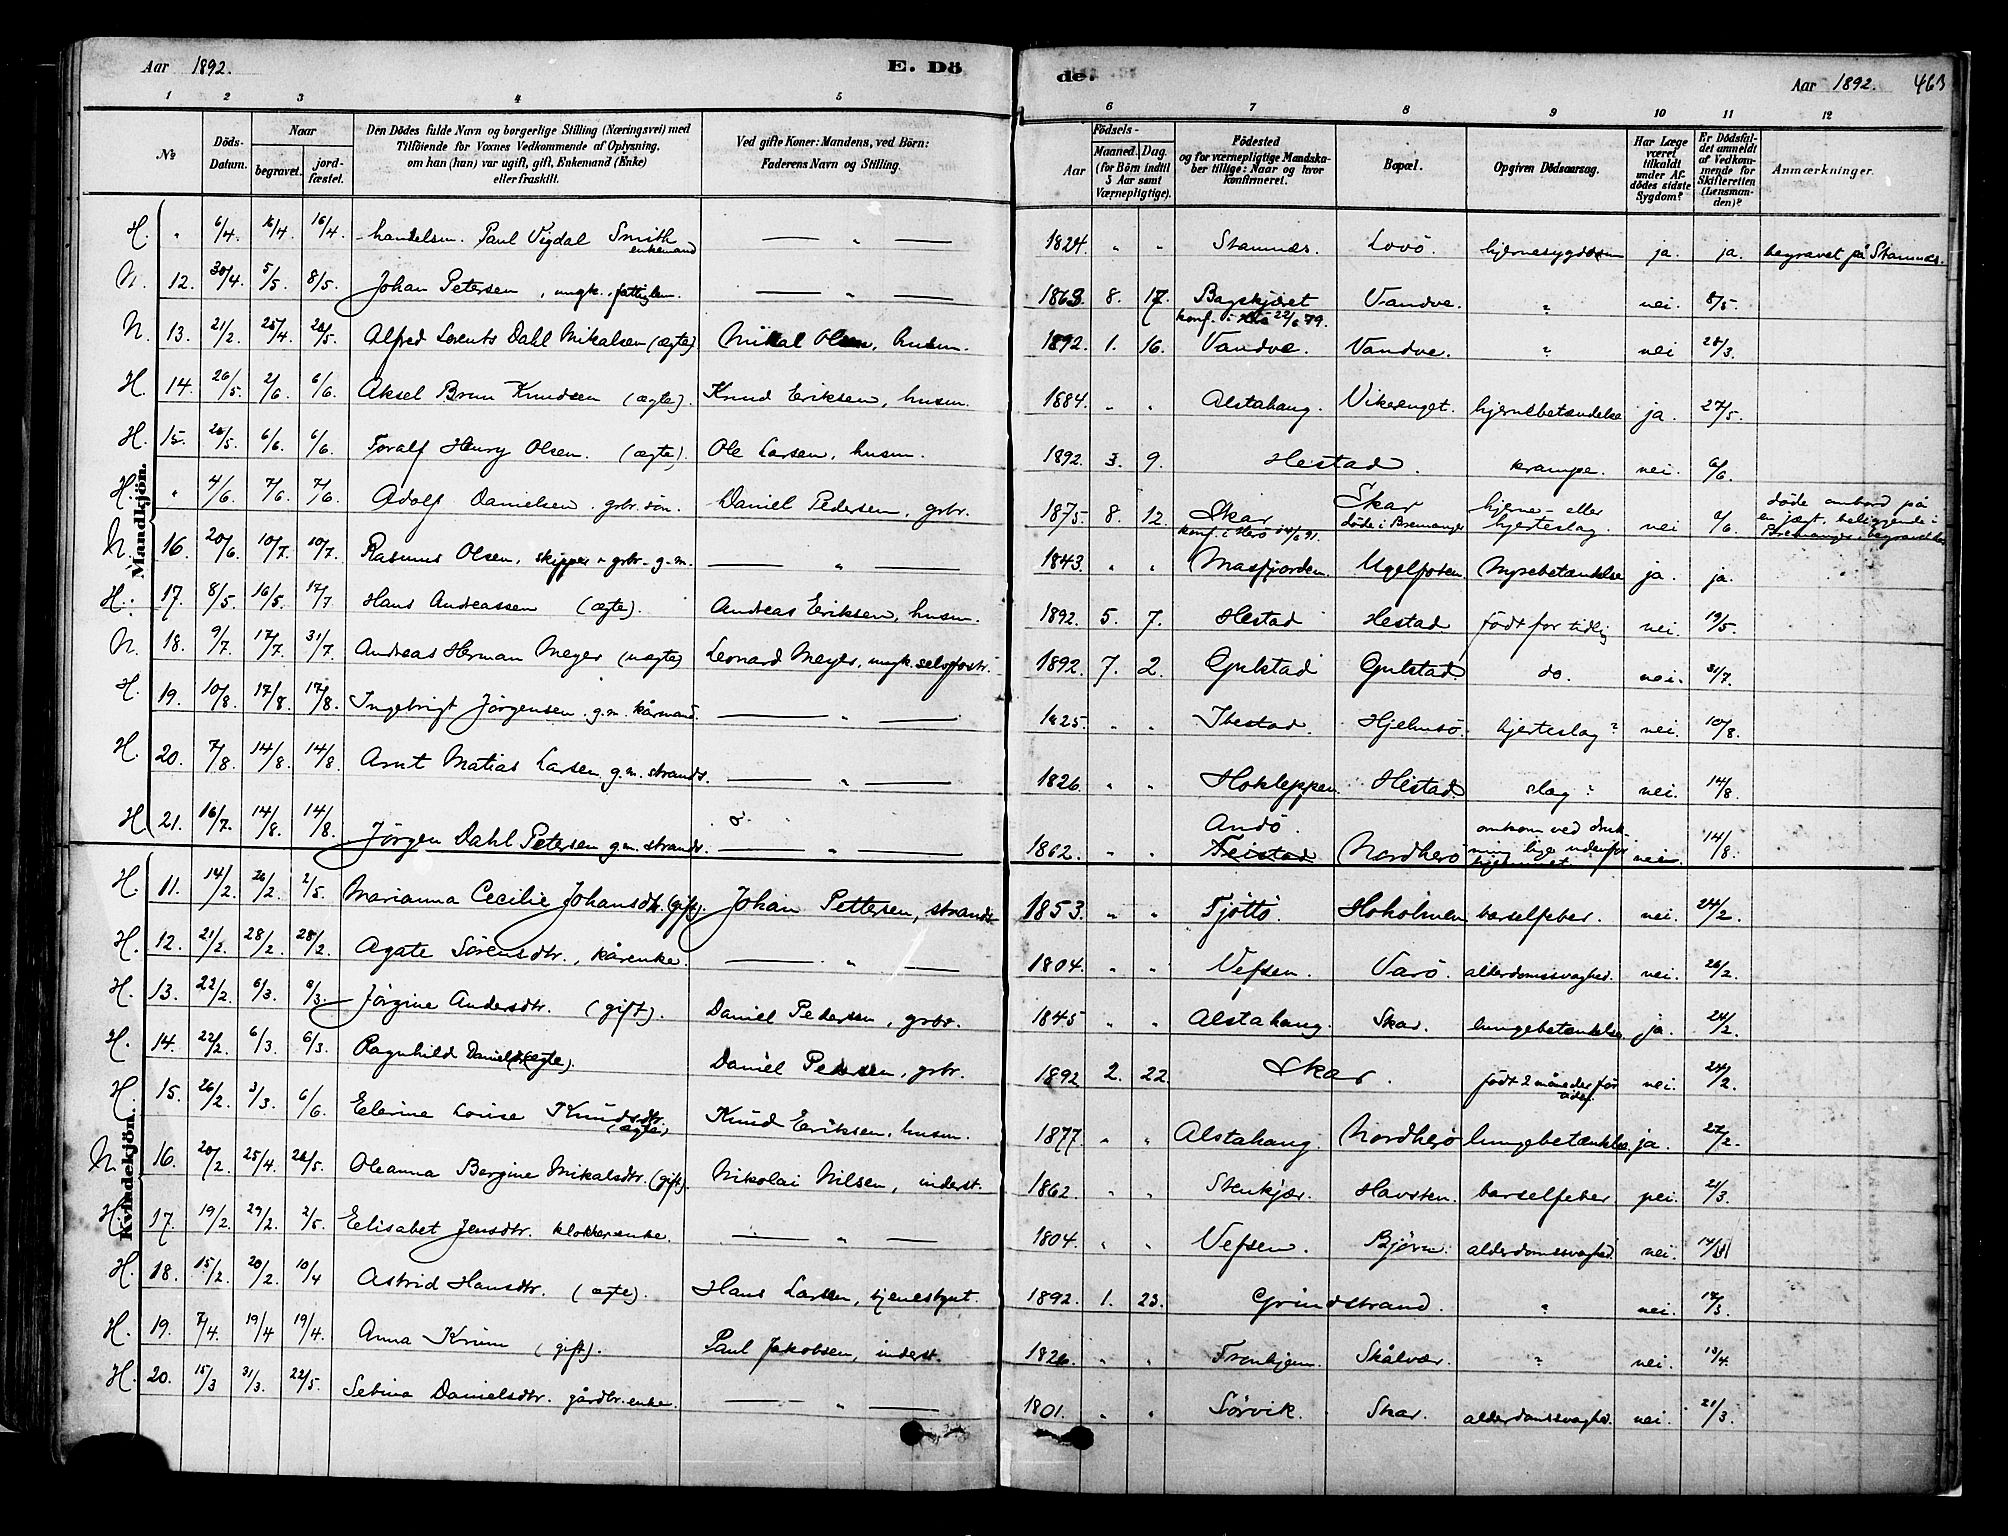 Aar 1892. E. Dö de. Aar 1892. 463
1 2 3 4 5 6 7 8 9 10 11 12
No Döds-Datum. Naar begravet. jord-fæstet. Den Dödes fulde Navn og borgerlige Stilling (Næringsvei) med Tilföiende for Voxnes Vedkommende af Oplysning, om han (hun) var ugift, gift, Enkemand (Enke) eller fraskilt. Ved gifte Koner: Mandens, ved Börn: Faderens Navn og Stilling. Födsels- Aar Maaned. Dag. (for Börn indtil 5 Aar samt Værnepligtige). Födested og for værnepligtige Mandska-ber tillige: Naar og hvor konfirmeret. Bopæl. Opgiven Dödsaarsag. Har Læge været tilkaldt under Af-dödes sidste Sygdom? Er Dödsfal-det anmeldt af Vedkom-mende for Skifteretten (Lensman-den)? Anmærkninger.
Mandkjön.
H. " 6/4. 16/4. 16/4. handelsm. Paul Vigdal Smith enkemand — " — 1824 " " Stamnæs. Lovö. hjernesygdom ja. ja. begravet på Stamnæs.
N. 12. 30/4. 5/5. 8/5. Johan Petersen, ungk., fattiglem. — " — 1863 8. 17 Bagskjæret konf. i 22/6 79. Vandve. " nei. 8/5
N 13. 21/2. 25/4. 28/5. Alfred Lorents Dahl Mikalsen (ægte) Mikal Olsen, husm. 1892. 1. 16. Vandve. Vandve. " nei 28/3.
H. 14. 26/5. 2/6. 6/6. Aksel Brun Knudsen (ægte). Knud Eriksen, husm. 1884. " " Alstahaug. Vikerenget. hjernebetændelse ja. 27/5.
H. 15. 26/5. 6/6. 6/6. Toralf Henry Olsen. (ægte). Ole Larsen, husm. 1892. 3. 9. Hestad. krampe. nei. 6/6.
H. " 4/6. 7/6. 7/6. Adolf Danielsen. grbr. sön. Daniel Pedersen, grbr. 1875. 8. 12. Skar konf. i Herö 14/6 91. Skar döde i Bremanger hjerne- eller hjerteslag. nei /6. döde ombord på en jægt, beliggende i Bremanger, begravet her
N. 16. 20/6. 10/7. 10/7. Rasmus Olsen, skipper & grbr. g.m. — " — 1843. " " Masfjorden. Ugelfosen. Nyrebetændelse ja. ja.
H. 17. 8/5. 16/5. 17/7 Hans Andreassen (ægte). Andreas Eriksen, husm. 1892. 5. 7. Hestad Hestad född for tidlig nei. 19/5.
N. 18. 9/7. 17/7. 31/7. Andreas Herman Meyer (uægte) Leonard Meyer, ungk. selvfostr. 1892. 7. 2. Gulstad Gulstad. do. nei. 31/7.
H 19. 10/8. 17/8. 17/8. Ingebrigt Jörgensen. g.m. kårmand. — " — 1825. " " Ibestad. Hjelmsö. hjerteslag? nei. 10/8.
H. 20. 7/8. 14/8. 14/8. Arnt Matias Larsen g.m. strands. — " — 1826. " " Hokleppen. Hestad. slag? nei. 14/8.
H 21. 16/7. 14/8. 14/8. Jörgen Dahl Petersen g.m. strands. — " — 1862. " " Andö. Teistad Nordherö omkom ved druk-ning lige udenfor hjemmet nei 14/8.
Kvindekjön.
H. 11. 14/2. 26/2. 2/5. Marianna Cecilie Johansdtr. (gift). Johan Pettersen, strands 1853. " " Tjöttö. Hokolmen barselfeber. nei. 24/2.
H. 12. 21/2. 28/2. 28/2. Agate Sörensdtr., kårenke. — " — 1804. " " Vefsen. Varö. alderdomssvaghed. nei. 26/2.
H. 13. 22/2. 6/3. 6/3. Jörgine Andersdtr. (gift). Daniel Pedersen, grbr. 1845 " " Alstahaug. Skar. lungebetændelse ja. 24/2.
H. 14. 22/2. 6/3. 6/3. Ragnhild Danielsd. (ægte). Daniel Pedersen, grbr. 1892 2. 22. Skar. född 2 måneder för tiden. nei. 24/2.
H. 15. 26/2. 3/3. 6/6. Elerine Lovise Knudsdtr. (ægte) Knud Eriksen, husm. 1877. " " Alstahaug. Nordherö lungebetændelse ja. 27/2.
N 16. 20/2. 25/4. 28/5. Oleanna Bergine Mikalsdtr. (gift). Nikolai Nilsen, inderst. 1862. " " Stenkjær. Havsten. barselfeber nei. 21/3.
H. 17. 19/2. 29/2. 2/5. Elisabet Jensdtr. klokkerenke. — " — 1804. " " Vefsen. Björn. alderdomssvaghed nei. 14/
H. 18. 15/2. 20/2. 10/4 Astrid Hansdtr. (ægte). Hans Larsen, tjenestgut. 1892. 1. 23. Grindstrand. " nei. 12/3.
H. 19. 7/4. 19/4 19/4. Anna Krim (gift). Paul Jakobsen, inderst. 1826. " " Tronhjem. Skålvær. " nei. 13/4.
H. 20. 15/3 31/3. 22/5. Sebina Danielsdtr. gårdbr. enke. — " — 1801. " " Sörvik. Skar. alderdomssvaghed. nei. 21/3.